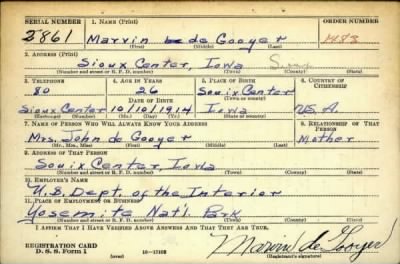 SERIAL NUMBER 1. NAME (Print) ORDER NUMBER
2861 Marvin de Gooyer 1483
(First) (Middle) (Last)
2. ADDRESS (Print)
Sioux Center, Iowa Sioux
(Number and street or R. F. D. number) (Town) (County) (State)
3. TELEPHONE 4. AGE IN YEARS 5. PLACE OF BIRTH 6. COUNTRY OF CITIZENSHIP
80 26 Souix Center
DATE OF BIRTH (Town or county)
Sioux Center 10/10/1914 Iowa U.S.A.
(Exchange) (Number) (Mo.) (Day) (Yr.) (State or country)
7. NAME OF PERSON WHO WILL ALWAYS KNOW YOUR ADDRESS 8. RELATIONSHIP OF THAT PERSON
Mrs. John de Gooyer Mother
(Mr., Mrs., Miss) (First) (Middle) (Last)
9. ADDRESS OF THAT PERSON
Souix Center, Iowa
(Number and street or R. F. D. number) (Town) (County) (State)
10. EMPLOYER'S NAME
U.S. Dept. of the Interior
11. PLACE OF EMPLOYMENT OR BUSINESS
Yosemite Nat'l. Park
(Number and street or R. F. D. number) (Town) (County) (State)
I AFFIRM THAT I HAVE VERIFIED ABOVE ANSWERS AND THAT THEY ARE TRUE.
REGISTRATION CARD
D. S. S. Form 1 (over) Marvin de Gooyer
(Registrant's signature)